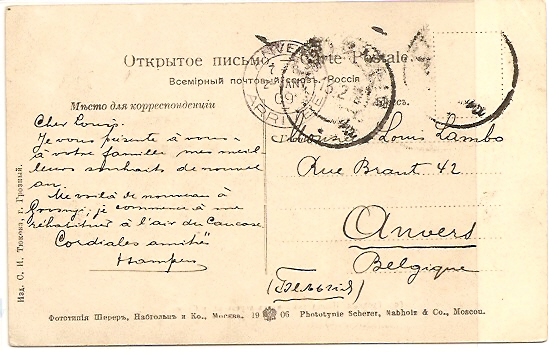 Открытое письмо. Carte Postale.
Всемірный почтовый союзъ. Россія
Мѣсто для корреспонденціи
Cher Louis,
Je vous présente à vous &
à votre famille mes meil-
leurs souhaits de nouvel
an.
Me voilà de nouveau à
Grosny; je commence à me
réhabituer à l'air du Caucase
Cordiales amitiés
Louis Lambo
Rue Braut 42
Anvers
Belgique
(Бельгія)
Изд. С. И. Тюкова, г. Грозный.
Фототипія Шереръ, Набгольцъ и Ко., Москва. 19 06 Phototypie Scherer, Nabholz & Co., Moscou.